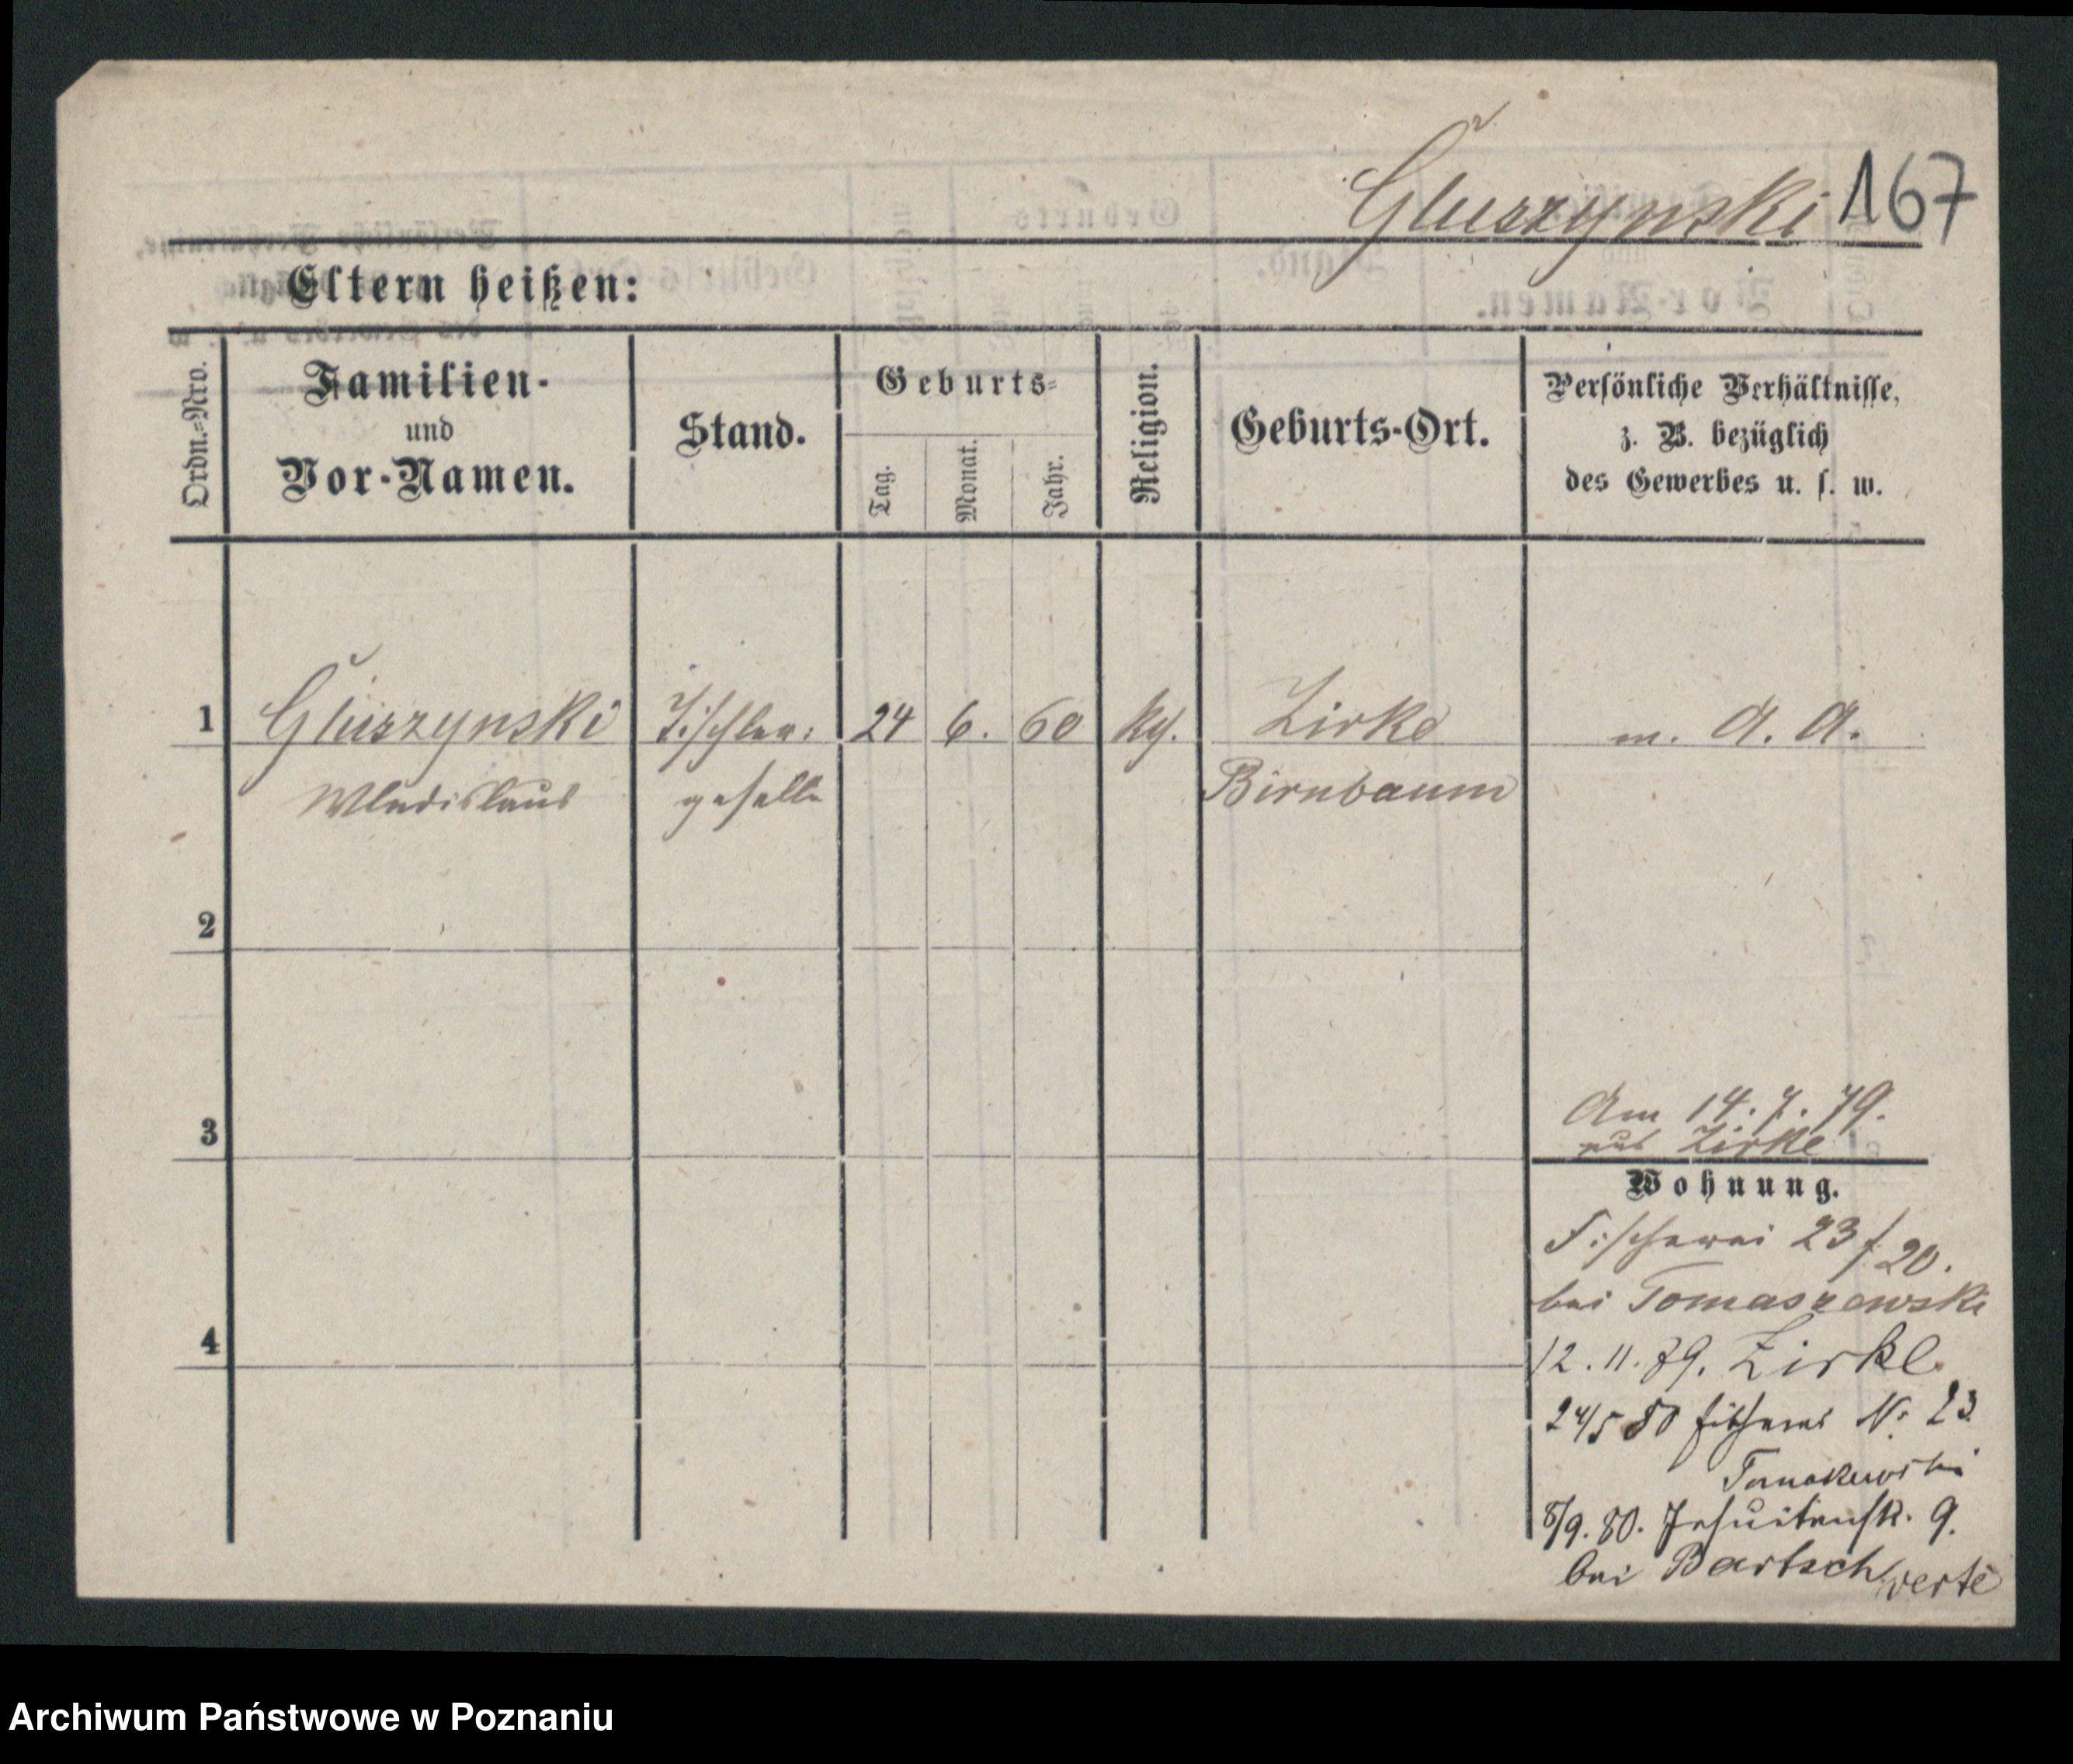 Gluszynski 167
Eltern heißen:
Ordn.=Nro.
Familien-
und
Vor-Namen.
Stand.
Geburts=
Tag.
Monat.
Jahr.
Religion.
Geburts-Ort.
Persönliche Verhältnisse,
z. B. bezüglich
des Gewerbes u. s. w.
1 Gluszynski Tischler= 24 6. 60 kg. Zirke m. A. A.
Wladislaus geselle Birnbaum
2
3
Am 14. 7. 79.
aus Zirke
Wohnung.
Fischerei 23/20.
bei Tomaszewski
4
12. 11. 79. Zirke
24/5 80 Fischerei No 23
8/9. 80. Jesuitenstr. 9.
bei Bartsch verte
Archiwum Państwowe w Poznaniu